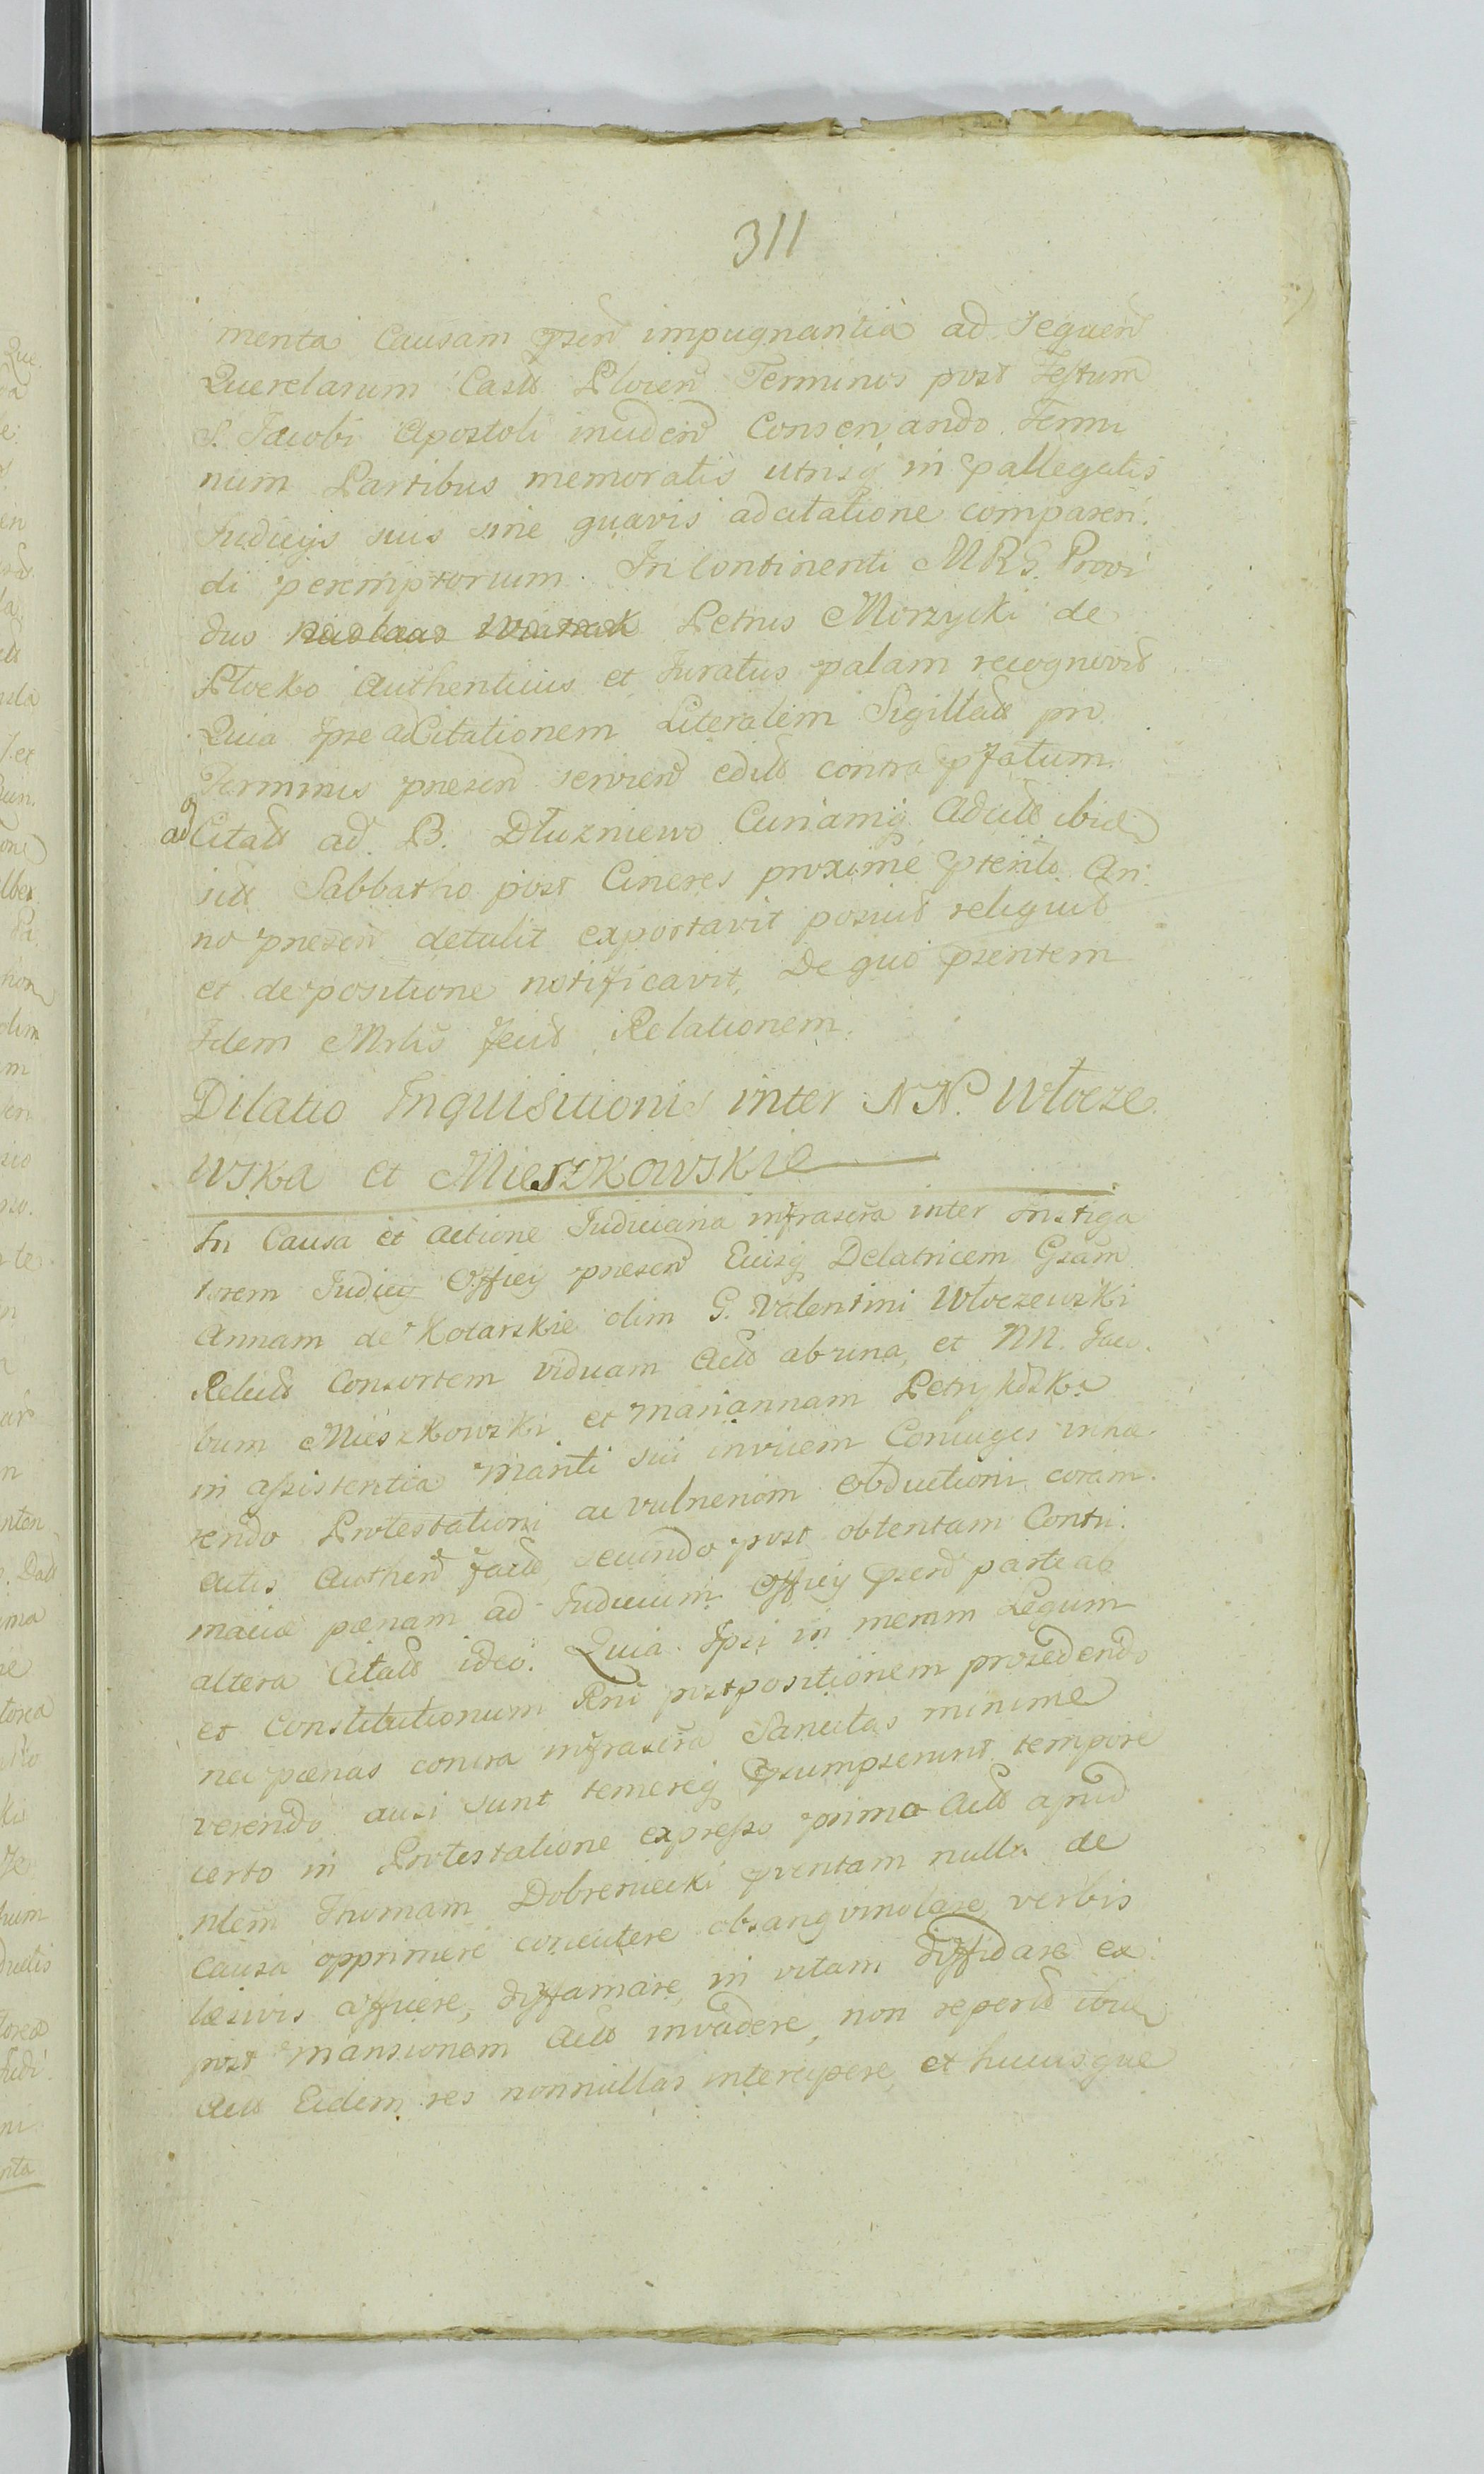 311
menta Causam pzen impugnantia ad Sequen
Querelarum Castr Plocen Terminos post Festum
S. Jacobi Apostoli inciden Conservando Termi
num Partibus memoratis utrisq in pallegatis
Judicijs suis sine quavis adcitatione comparen.
di peremptorium. In Continenti MRS. Provi
dus Petrus Morzycki de
Plocko Authenticus et Juratus palam recognovit
Quia Ipse adCitationem Literalem Sigillat pro
Terminis presen servien edit contra pfatum
ad Citatt ad B. Dłuzniewo Curiamq Adcitt ibid
sitt Sabbatho post Cineres proxime pterito An.
no presen detulit exportavit posuit reliquit
et depositione notificavit, De quo psentem
Idem Mrlis fecit Relationem.
Dilatio Inquisitionis inter NN. Włocze
wska et Mieszkowskie
In Causa et Actione Judiciaria infrascra inter instiga
torem Judicij Officij presen Eiusq Delatricem Gsam
Annam de Kotarskie olim G. Valentini Włoczewski
Relict Consortem viduam Actt ab una, et NN. Jaco.
bum Mieszkowski et Mariannam Petrykoska
in assistentia Mariti sui invicem Coniuges inhæ.
rendo Protestationi ac vulnerum obductioni coram
actis Authen fact, secundo post obtentam Contu.
maciæ pœnam ad Judicium Officij pzen parte ab
altera Citatt ideo. Quia Ipsi in meram Legum
et Constitutionum Rni postpositionem procedendo
nec pœnas contra infrascra Sancitas minime
verendo ausi sunt temereq psumpserunt tempore
certo in Protestatione expresso prima Actt apud
nlem Thomam Dobreniecki pventam nulla de
causa opprimere concutere obsangvinolare, verbis
læsivis afficere, diffamare, in vitam diffidare ex
post Mansionem Actt invadere, non repert ibid
Actt Eidem res nonnullas intercipere, et hucusque